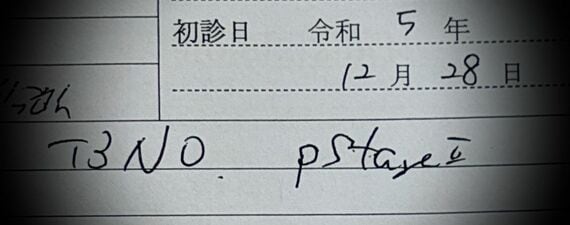 初診日 令和 5 年
12 月 28 日
T3 N0. pStage II